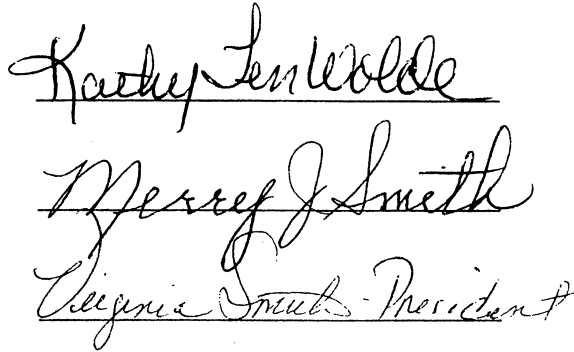 Kathy TenWolde
Merrey J Smith
Virginia Smith - President